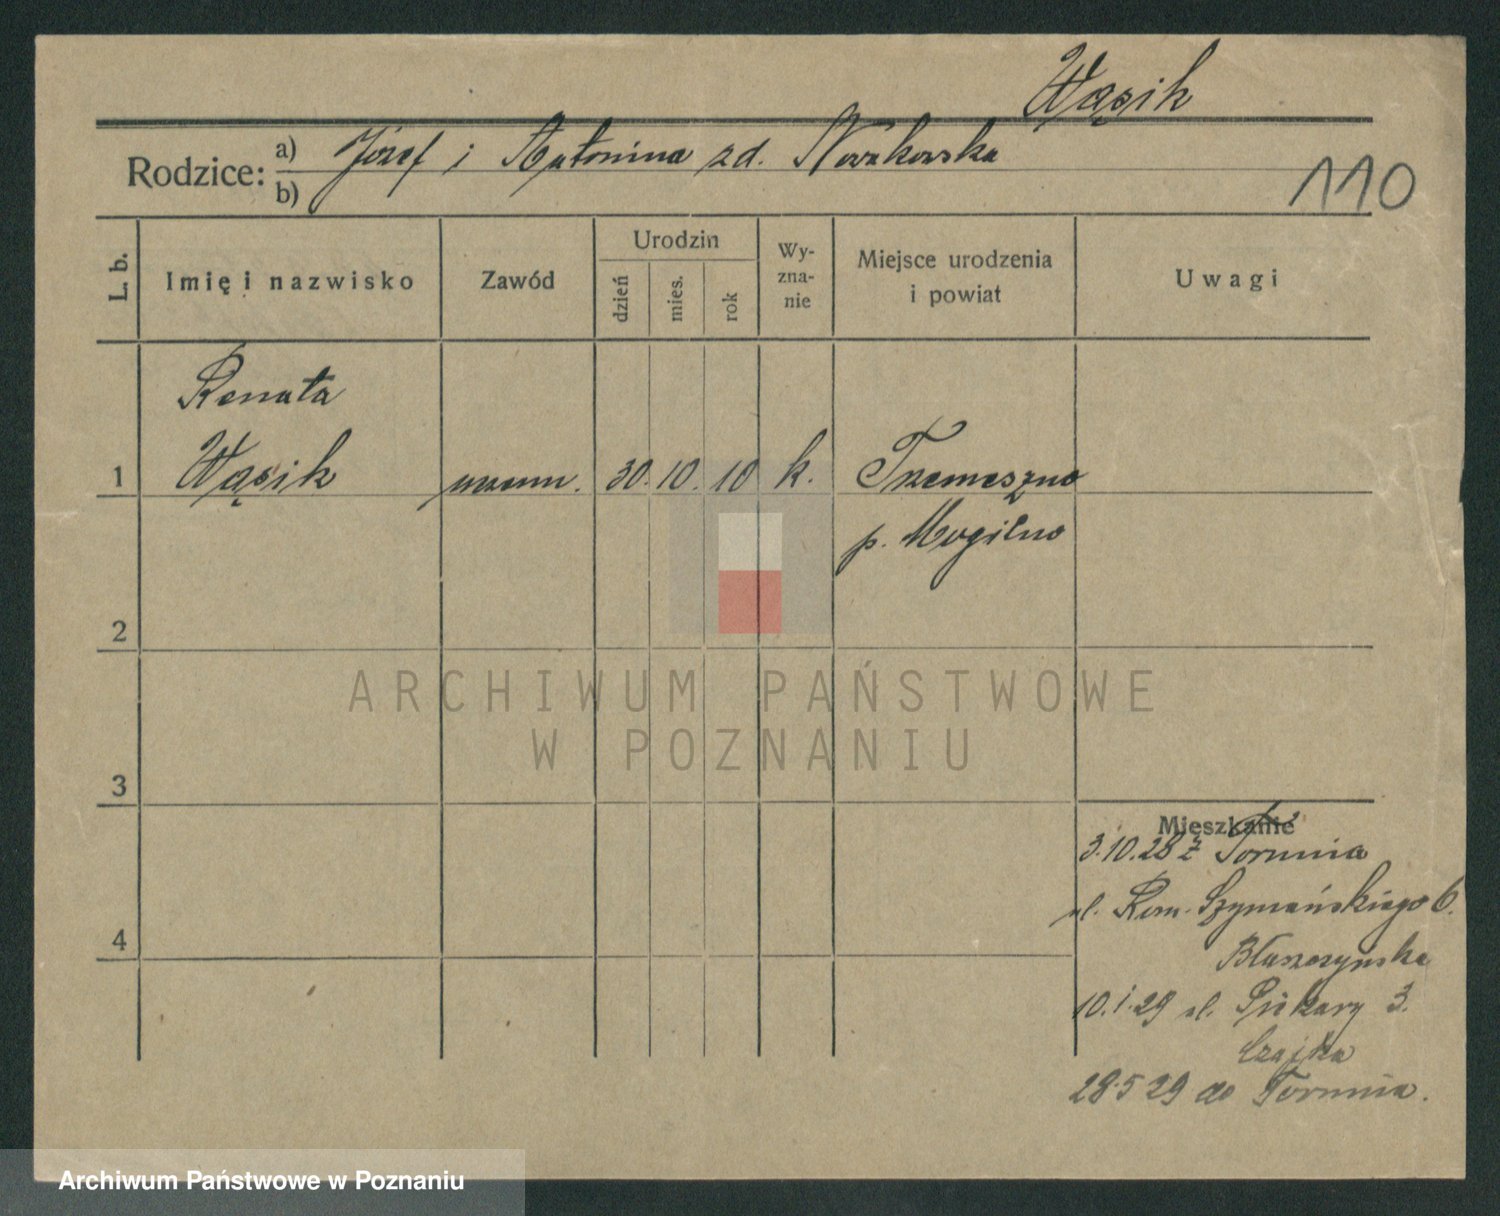 Wąsik
Rodzice: a) Józef i Antonina zd. Noszkowska
b)
110
L. b.
Imię i nazwisko
Zawód
Urodzin
dzień
mies.
rok
Wy-
zna-
nie
Miejsce urodzenia
i powiat
Uwagi
Renata
1 Wąsik uczenn. 30. 10. 10 k. Trzemeszno
p. Mogilno
2
ARCHIWUM PAŃSTWOWE
W POZNANIU
3
Mieszkanie
3.10.28 z Torunia
ul. Rom. Szymańskiego 6.
Błaszczyńska
4
10.1.29 ul. Piekary 3.
Czajka
28.5 29 do Torunia.
Archiwum Państwowe w Poznaniu